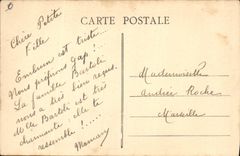 CARTE POSTALE
Chère Petite
Fille
Embrun est triste...
Nous préférons Gap!...
La famille Bartoli
nous a très bien reçus.
Mlle Bartoli est très
charmante elle te
ressemble!....
Maman
Mademoiselle
Andrée Roche
Marseille